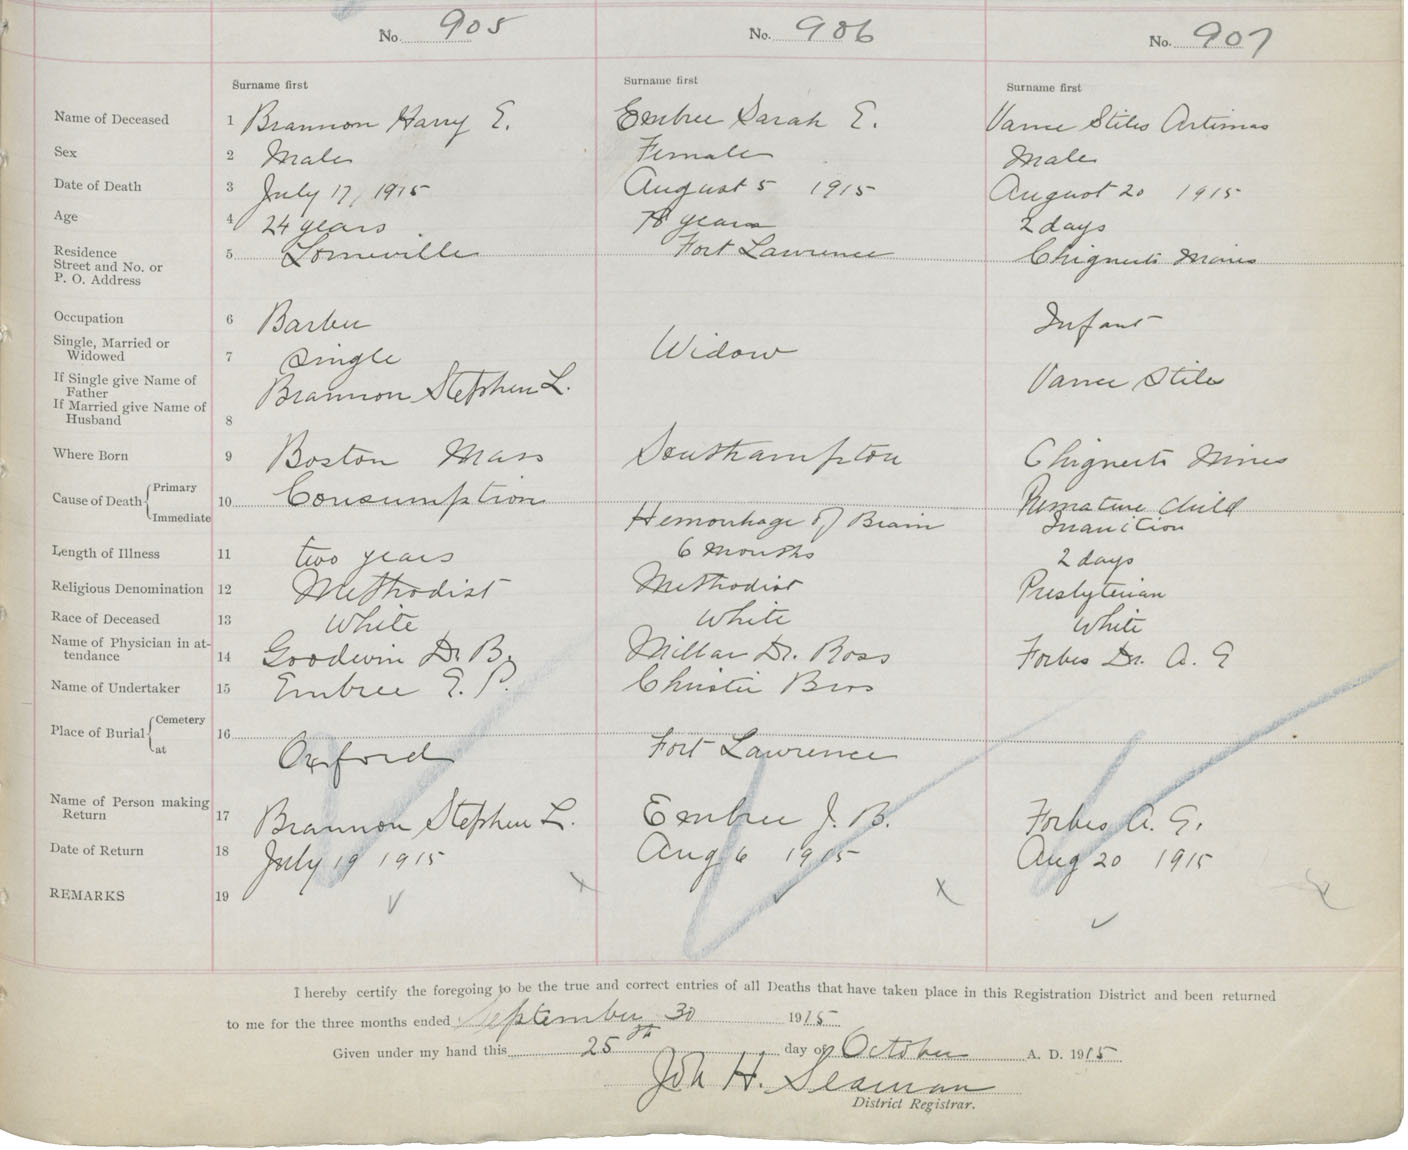 No. 905 No. 906 No. 907
Surname first Surname first Surname first
Name of Deceased 1 Brannon Harry E. Embree Sarah E. Vance Stiles Artimas
Sex 2 Male Female Male
Date of Death 3 July 17, 1915 August 5 1915 August 20 1915
Age 4 24 years 78 years 2 days
Residence 5 Lorneville Fort Lawrence Chignecto Mines
Street and No. or
P. O. Address
Occupation 6 Barber Infant
Single, Married or
Widowed 7 Single Widow
If Single give Name of
Father Brannon Stephen L. Vance Stiles
If Married give Name of
Husband 8
Where Born 9 Boston Mass Southampton Chignecto Mines
Cause of Death Primary 10 Consumption Premature Child
Immediate Hemorrhage of Brain Inanition
Length of Illness 11 two years 6 months 2 days
Religious Denomination 12 Methodist Methodist Presbyterian
Race of Deceased 13 White White White
Name of Physician in at-
tendance 14 Goodwin Dr. B. Millar Dr. Ross Forbes Dr. A. E
Name of Undertaker 15 Embree E. P. Christie Bros
Place of Burial Cemetery 16
at Oxford Fort Lawrence
Name of Person making
Return 17 Brannon Stephen L. Embree J. B. Forbes A. E.
Date of Return 18 July 19 1915 Aug 6 1915 Aug 20 1915
REMARKS 19
I hereby certify the foregoing to be the true and correct entries of all Deaths that have taken place in this Registration District and been returned
to me for the three months ended September 30 1915
Given under my hand this 25th day of October A. D. 1915
Joh H. Seaman
District Registrar.